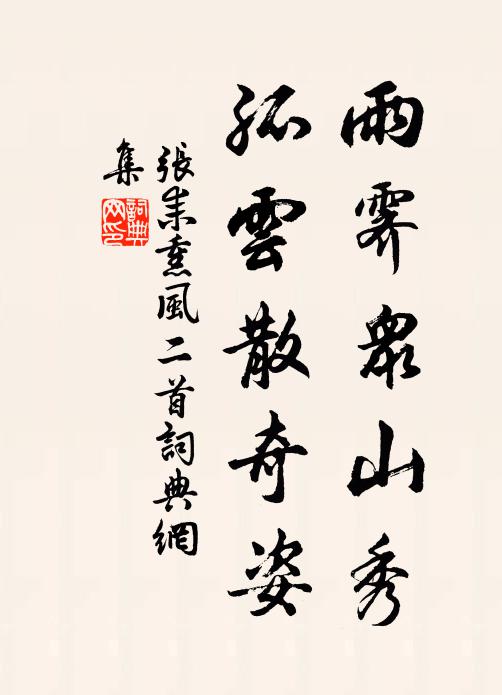 雨霽衆山秀
孤雲散奇姿
張耒熏風二首詞典網
集
詞典
网印